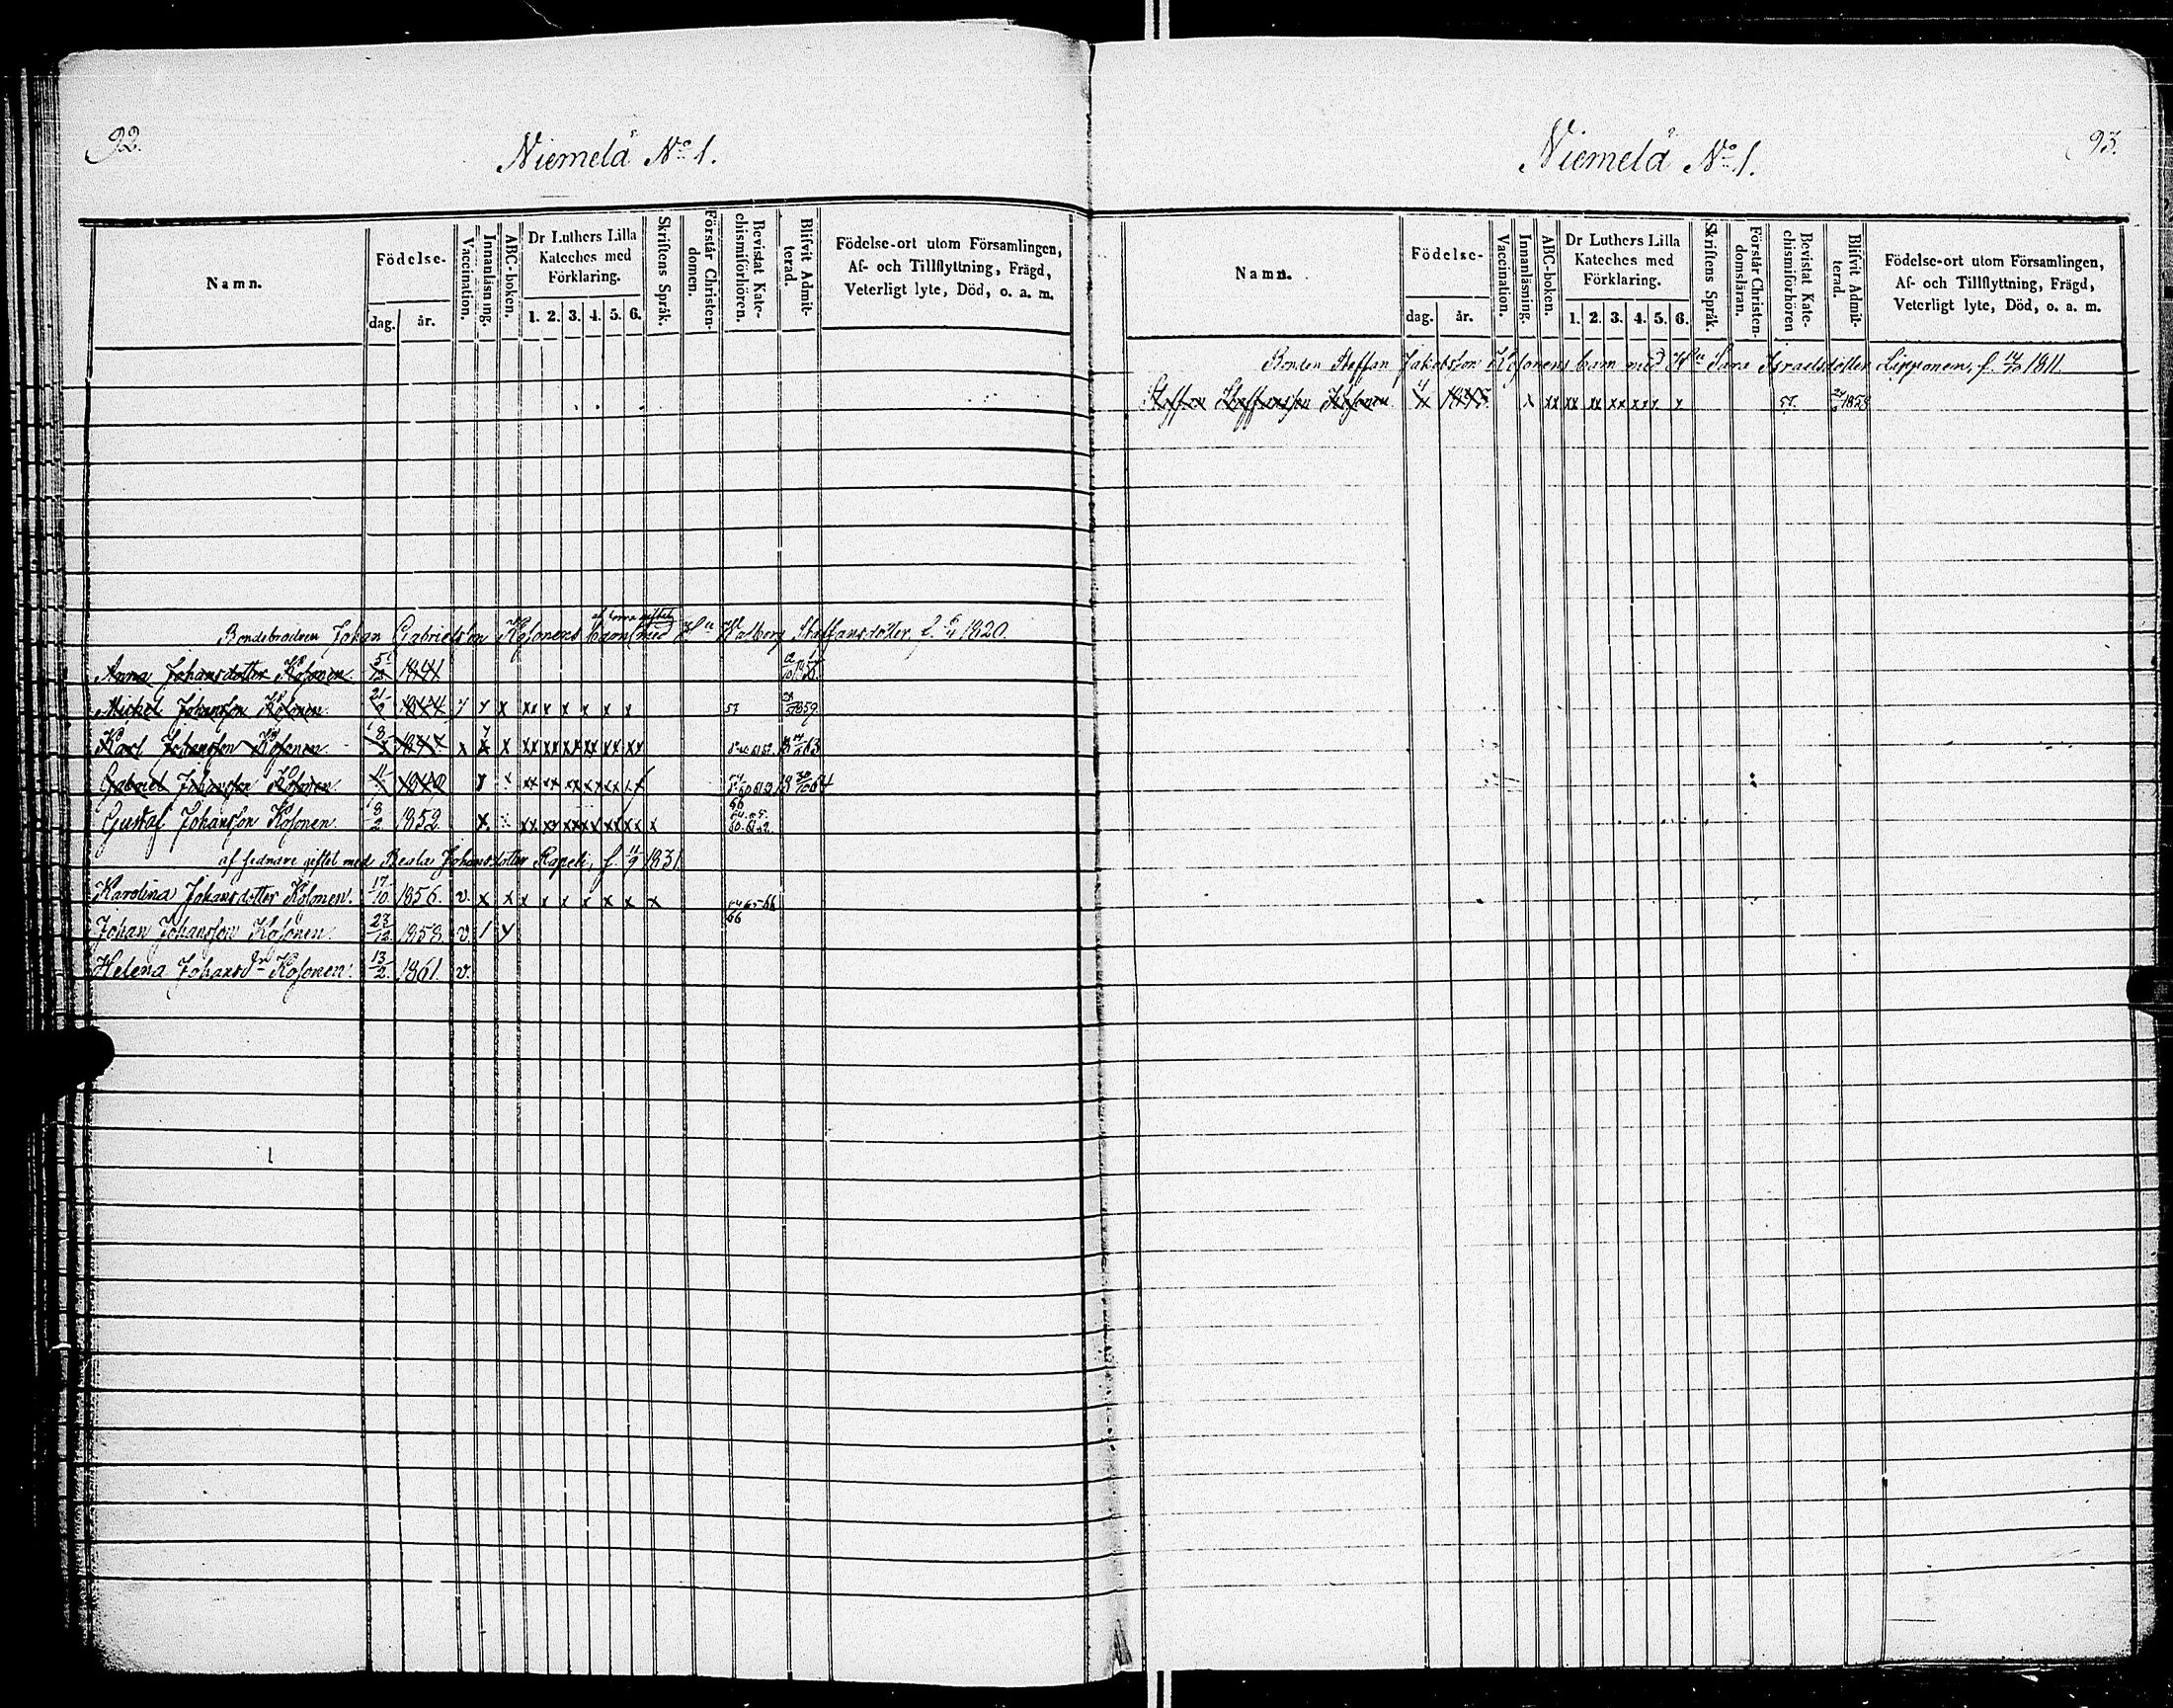 92.
Niemelä No 1.
Namn.
Födelse-
dag. år.
Vaccination.
Innanläsning.
ABC-boken.
Dr Luthers Lilla
Kateches med
Förklaring.
1. 2. 3. 4. 5. 6.
Skriftens Språk.
Förstår Christen-
domen.
Bevistat Kate-
chismiförhören.
Blifvit Admit-
terad.
Födelse-ort utom Församlingen,
Af- och Tillflyttning, Frägd,
Veterligt lyte, Död, o. a. m.
Bondebrodren Johan Gabrielsson Kosonens barn med Walborg Staffansdotter, f. 1820.
Anna Johansdotter Kosonen 1841
Michel Johansson Kosonen 21 1844 y y x xx x x x x x 57 1859
Karl Johansson Kosonen 1847 x x x xx xx xx xx xx xx
Gabriel Johansson Kosonen 1849
Gustaf Johansson Kosonen 8/2 1852 x
af sednare giftet med Beata Johansdotter Rapeli, f. 11/9 1831
Karolina Johansdotter Kosonen. 17/10 1856. v. x x x x x x x x x 64 65 66
Johan Johansson Kosonen 23/12 1858 v. / y 66
Helena Johansdr Kosonen. 13/2 1861. v.
Niemelä No 1.
93.
Namn.
Födelse-
dag. år.
Vaccination.
Innanläsning.
ABC-boken.
Dr Luthers Lilla
Kateches med
Förklaring.
1. 2. 3. 4. 5. 6.
Skriftens Språk.
Förstår Christen-
domsläran.
Bevistat Kate-
chismiförhören
Blifvit Admit-
terad.
Födelse-ort utom Församlingen,
Af- och Tillflyttning, Frägd,
Veterligt lyte, Död, o. a. m.
Bonden Steffan Jakobsson Kosonens barn med Sara Israelsdotter Lipponen, f. 1811.
Steffan Steffansson Kosonen 1845 x xx xx xx xx xx x 57.